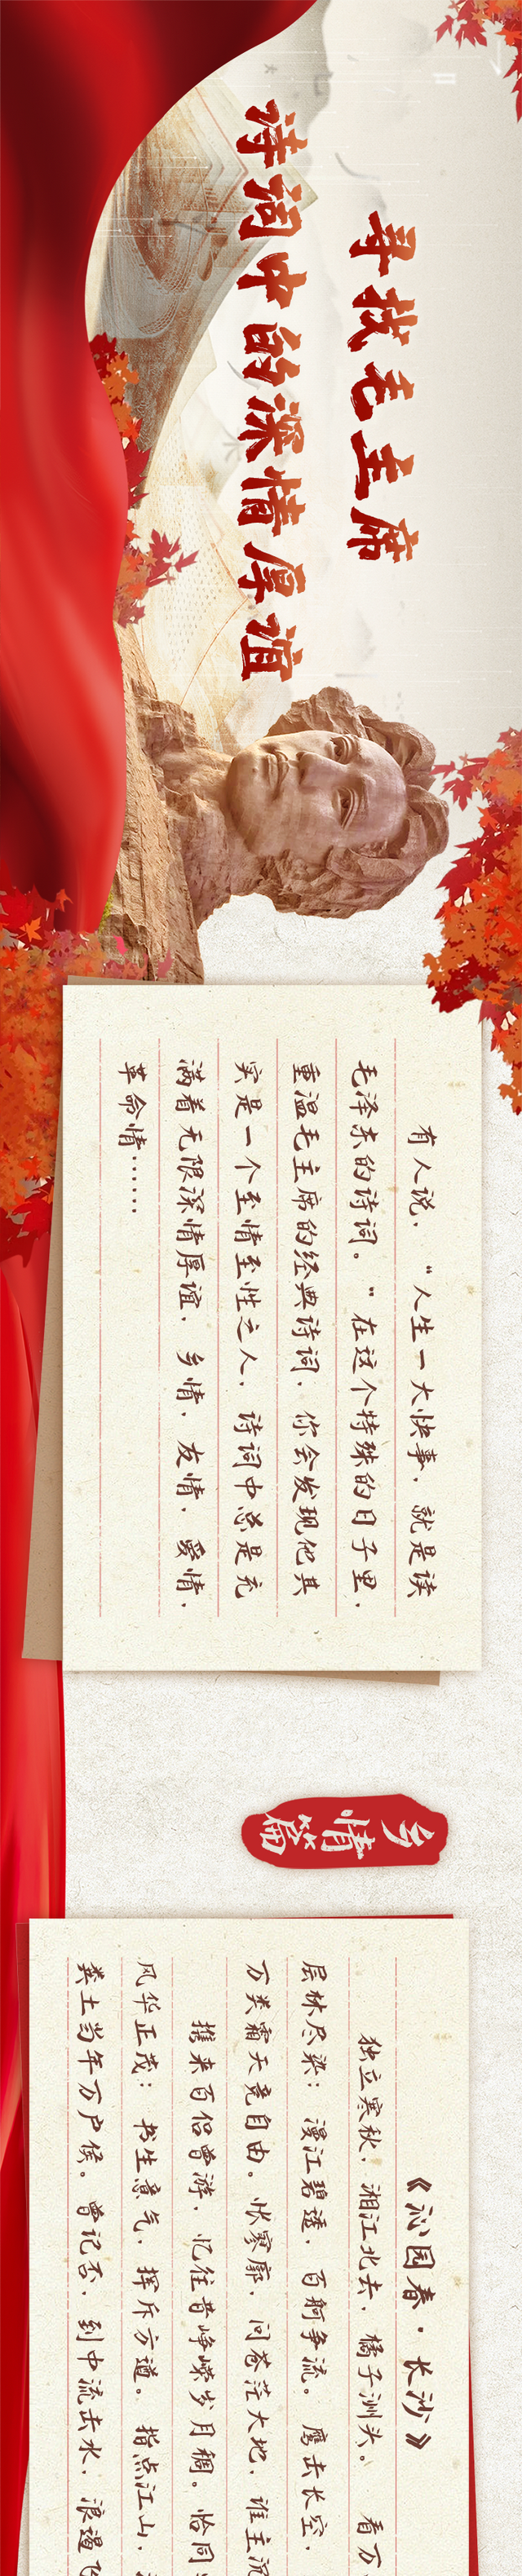 寻找毛主席
诗词中的深情厚谊
有人说,“人生一大快事,就是读
毛泽东的诗词。”在这个特殊的日子里,
重温毛主席的经典诗词,你会发现他其
实是一个至情至性之人,诗词中总是充
满着无限深情厚谊,乡情,友情,爱情,
革命情……
乡情篇
《沁园春·长沙》
独立寒秋,湘江北去,橘子洲头。 看万
层林尽染;漫江碧透,百舸争流。鹰击长空,
万类霜天竞自由。怅寥廓,问苍茫大地,谁主沉
携来百侣曾游,忆往昔峥嵘岁月稠。恰同
风华正茂;书生意气,挥斥方遒。指点江山,
粪土当年万户侯。曾记否,到中流击水,浪遏飞